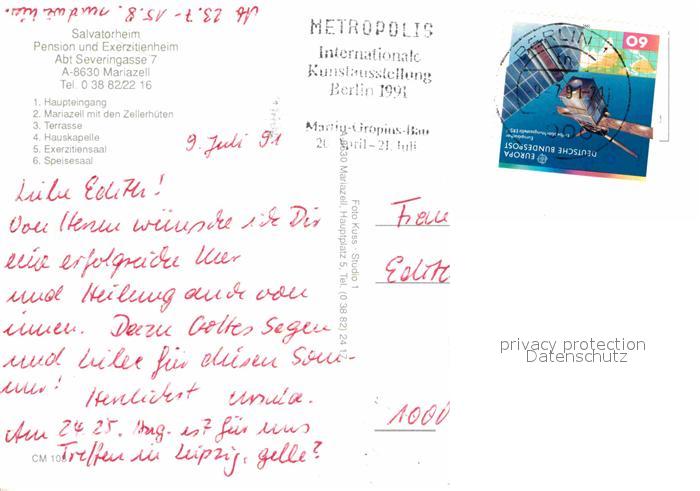 Ab 23.7 - 15.8. sind wir hier.
Salvatorheim
Pension und Exerzitienheim
Abt Severingasse 7
A-8630 Mariazell
Tel. 0 38 82/22 16
1. Haupteingang
2. Mariazell mit den Zellerhüten
3. Terrasse
4. Hauskapelle
5. Exerzitiensaal
6. Speisesaal
9. Juli 91
Liebe Edith!
Von Herzen wünsche ich Dir
eine erfolgreiche Kur
und Heilung auch von
innen. Dazu Gottes Segen
und Liebe für diesen Som-
mer!
Herzlichst Ursula.
Am 24 25. Aug. ist für uns
Treffen in Leipzig, gelle?
CM 103
Foto Kuss · Studio 1
8630 Mariazell, Hauptplatz 5, Tel. (0 38 82) 24 17
METROPOLIS
Internationale
Kunstausstellung
Berlin 1991
Martin-Gropius-Bau
20. April - 21. Juli
BERLIN
60
EUROPA
DEUTSCHE BUNDESPOST
Frau
Edith
1000
privacy protection
Datenschutz